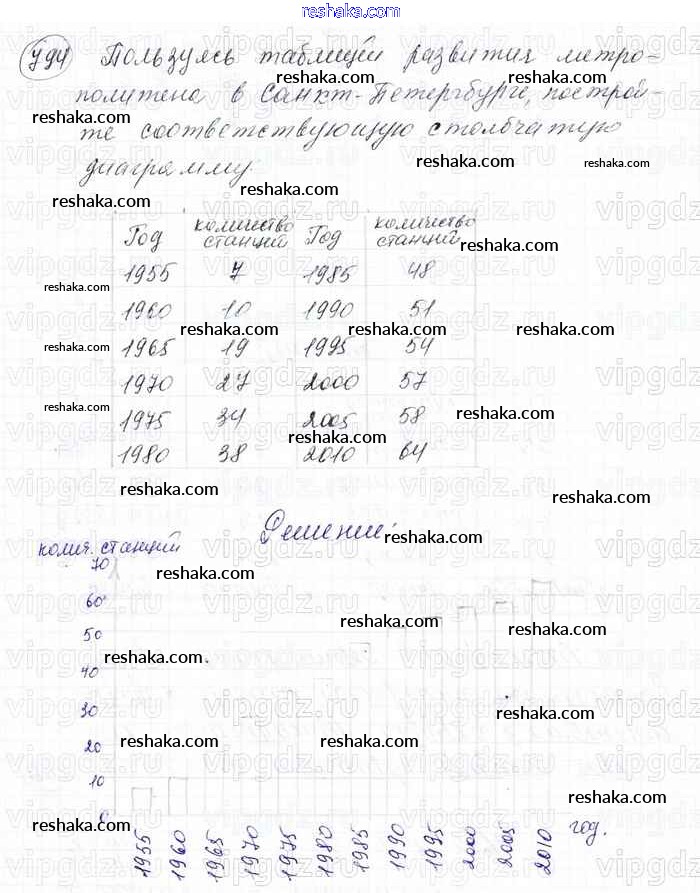 reshaka.com
794 Пользуясь таблицей развития метро-
политена в Санкт-Петербурге, построй-
те соответствующую столбчатую
диаграмму.
Год количество станций Год количество станций
1955 7 1985 48
1960 10 1990 51
1965 19 1995 54
1970 27 2000 57
1975 34 2005 58
1980 38 2010 64
Решение:
колич. станций
70
60
50
40
30
20
10
0
1955 1960 1965 1970 1975 1980 1985 1990 1995 2000 2005 2010 год.
reshaka.com
vipgdz.ru